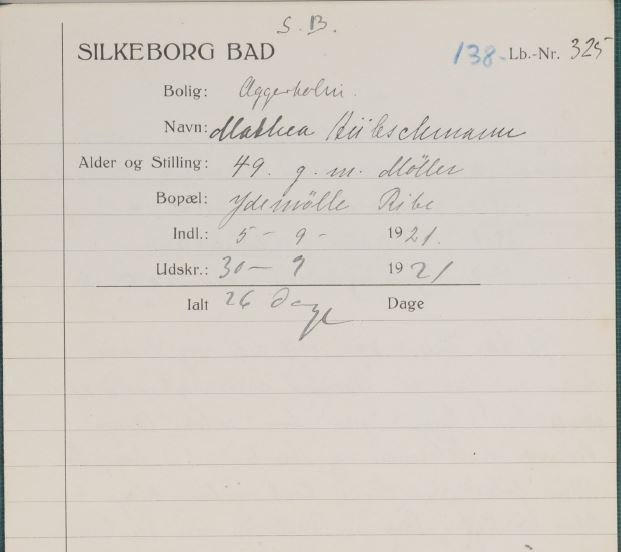 S. B.
SILKEBORG BAD 138- Lb.-Nr. 325
Bolig: Aggerholm.
Navn: Mathea Hübschmann
Alder og Stilling: 49. g. m. Møller
Bopæl: Ydemølle Ribe
Indl.: 5 - 9 - 1921.
Udskr.: 30 - 9 1921
Ialt 26 Dage Dage